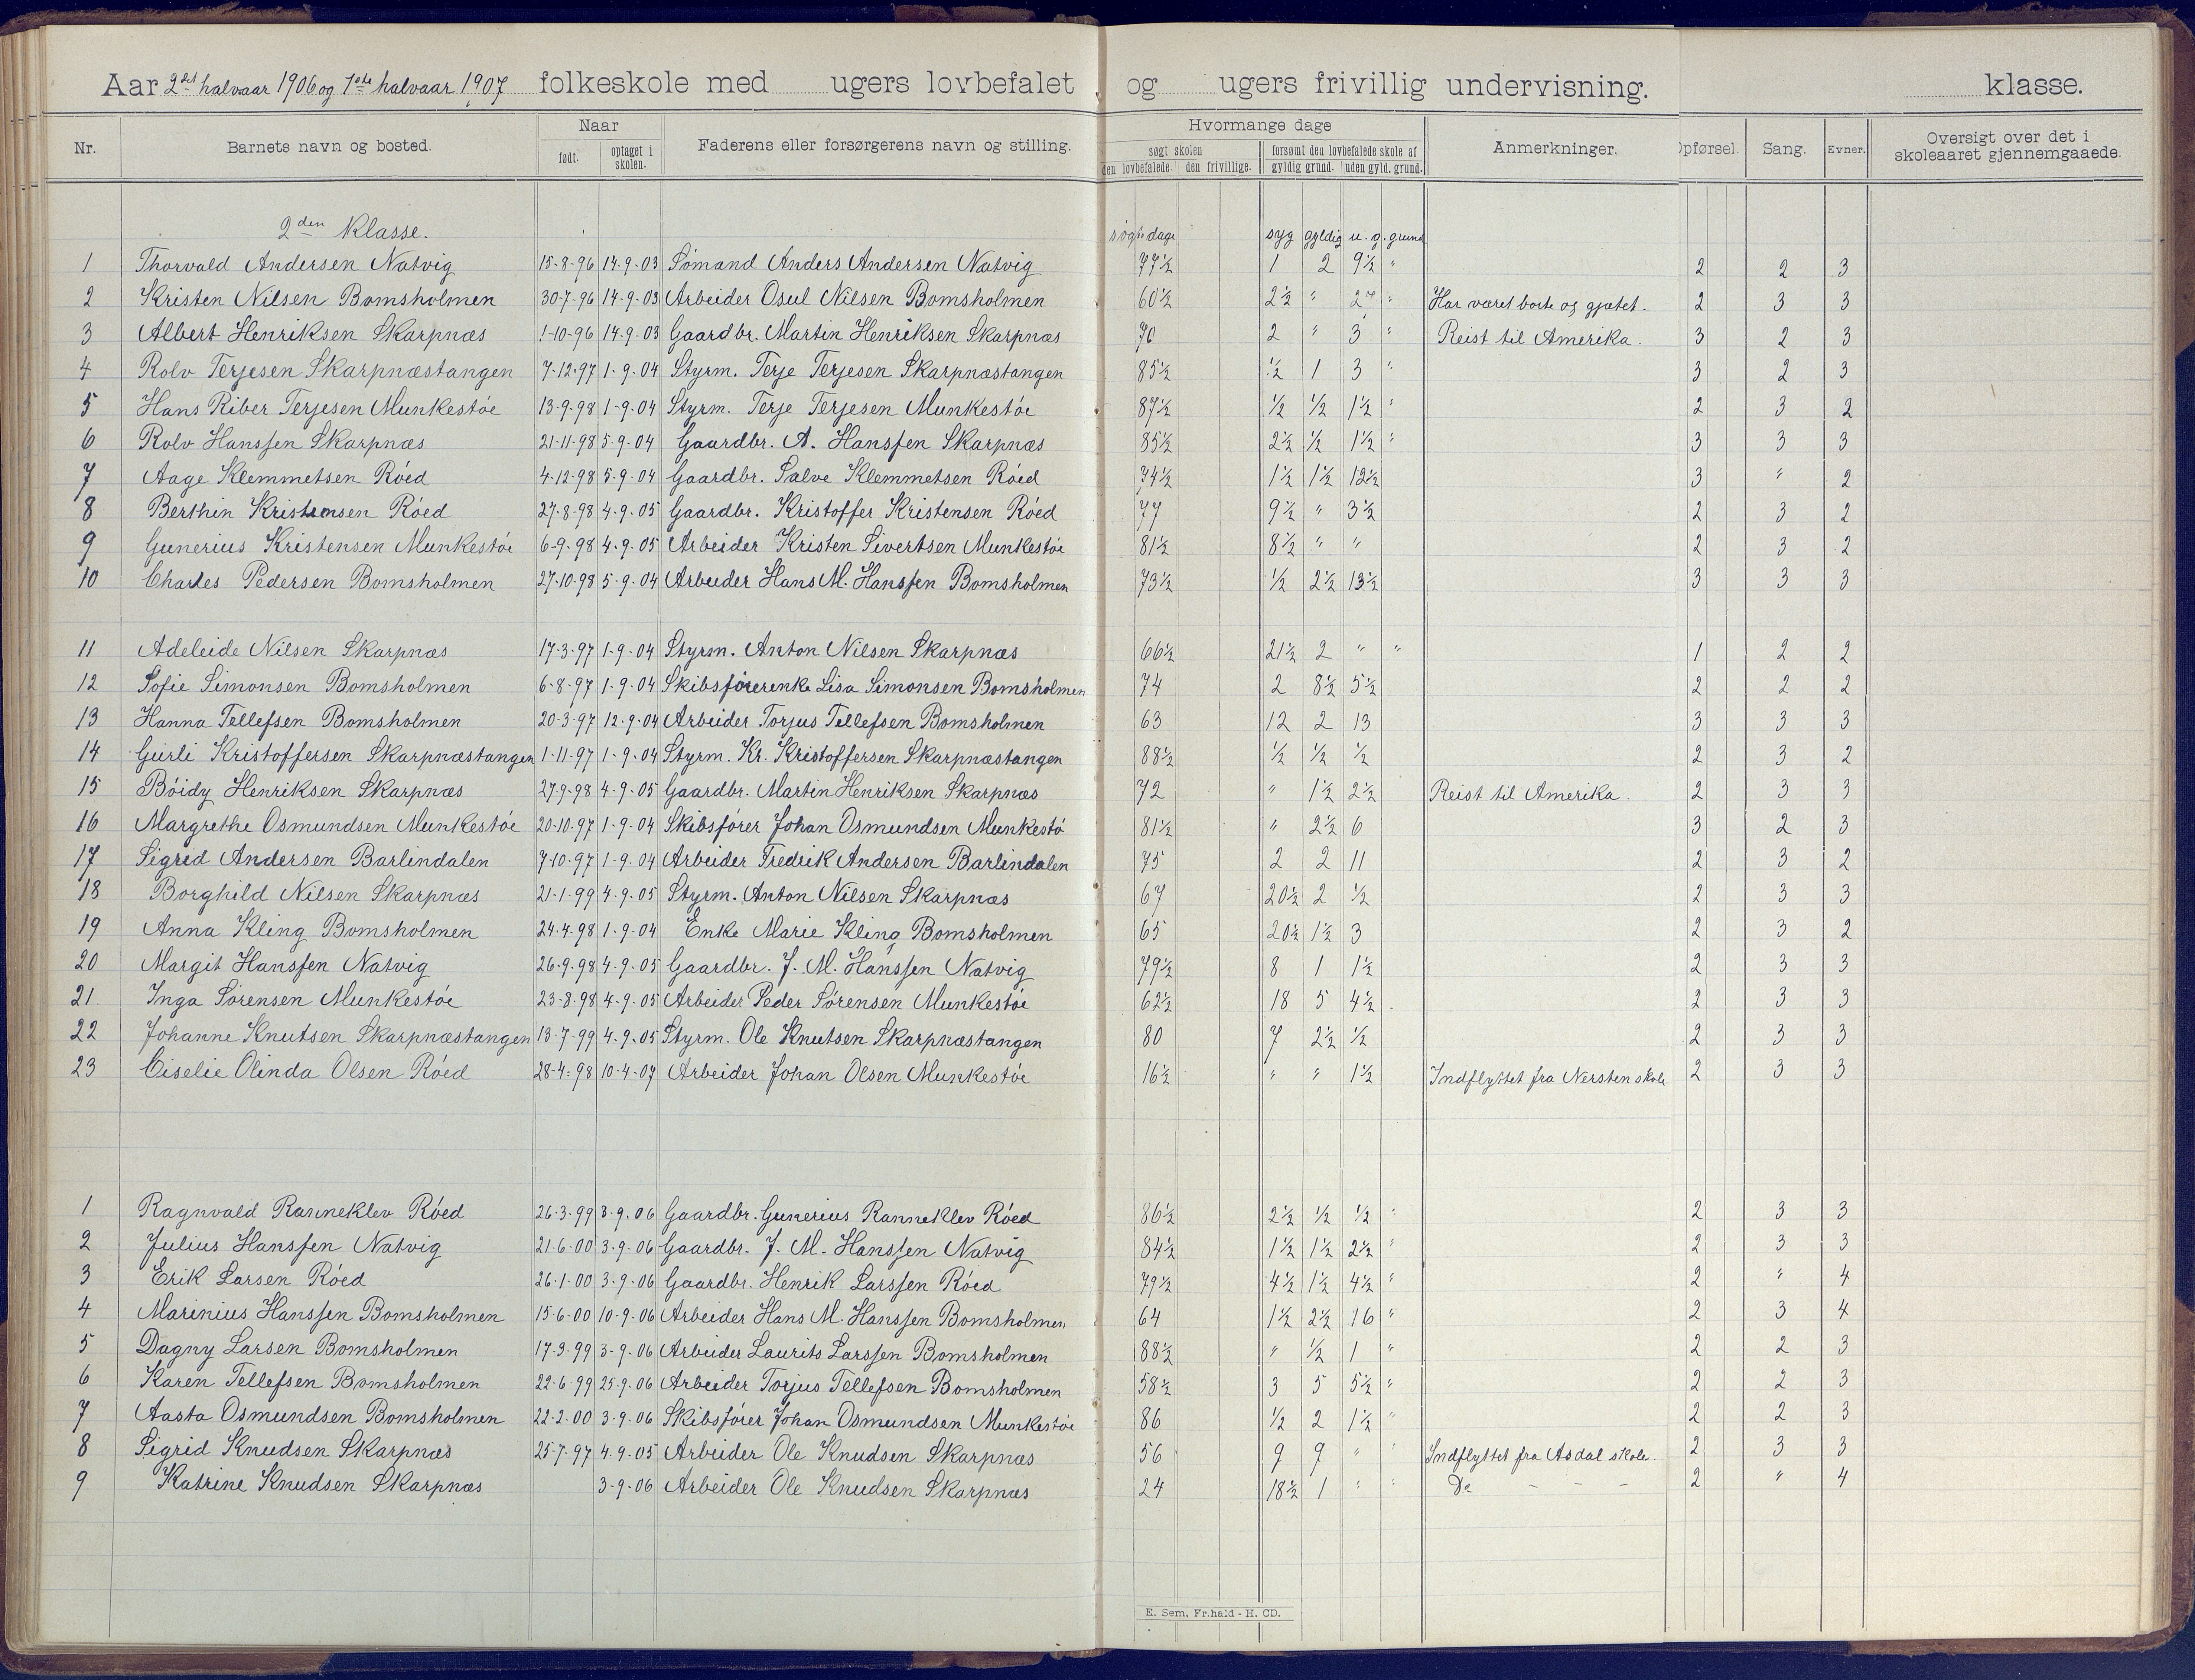 Aar 2det halvaar 1906 og 1ste halvaar 1907 folkeskole med ugers lovbefalet og ugers frivillig undervisning. klasse.
Nr. Barnets navn og bosted. Naar født. optaget i skolen. Faderens eller forsørgerens navn og stilling. Hvormange dage søgt skolen den lovbefalede. den frivillige. forsømt den lovbefalede skole af gyldig grund. uden gyld. grund. Anmerkninger. Opførsel. Sang. Evner. Oversigt over det i skoleaaret gjennemgaaede.
2den Klasse. søgte dage syg gyldig u. g. grund
1 Thorvald Andersen Natvig 15-8-96 14-9-03 Sømand Anders Andersen Natvig 77½ 1 2 9½ " 2 2 3
2 Kristen Nilsen Bomsholmen 30-7-96 14-9-03 Arbeider Osul Nilsen Bomsholmen 60½ 2½ " 27 " Har været borte og gjætet. 2 3 3
3 Albert Henriksen Skarpnæs 1-10-96 14-9-03 Gaardbr. Martin Henriksen Skarpnæs 70 2 " 3 " Reist til Amerika. 3 2 3
4 Rolv Terjesen Skarpnæstangen 7-12-97 1-9-04 Styrm. Terje Terjesen Skarpnæstangen 85½ ½ 1 3 " 3 2 3
5 Hans Riber Terjesen Munkestøe 13-9-98 1-9-04 Styrm. Terje Terjesen Munkestøe 87½ ½ ½ 1½ " 2 3 2
6 Rolv Hanssen Skarpnæs 21-11-98 5-9-04 Gaardbr. A. Hanssen Skarpnæs 85½ 2½ ½ 1½ " 3 3 3
7 Aage Klemmetsen Røed 4-12-98 5-9-04 Gaardbr. Salve Klemmetsen Røed 74½ 1½ 1½ 12½ 3 " 2
8 Berthin Kristensen Røed 27-8-98 4-9-05 Gaardbr. Kristoffer Kristensen Røed 77 9½ " 3½ 2 3 2
9 Gunerius Kristensen Munkestøe 6-9-98 4-9-05 Arbeider Kristen Sivertsen Munkestøe 81½ 8½ " " 2 3 2
10 Charles Pedersen Bomsholmen 27-10-98 5-9-04 Arbeider Hans M. Hanssen Bomsholmen 73½ ½ 2½ 13½ 3 3 3
11 Adeleide Nilsen Skarpnæs 17-3-97 1-9-04 Styrm. Anton Nilsen Skarpnæs 66½ 21½ 2 " " 1 2 2
12 Sofie Simonsen Bomsholmen 6-8-97 1-9-04 Skibsførerenke Lisa Simonsen Bomsholmen 74 2 8½ 5½ 2 2 2
13 Hanna Tellefsen Bomsholmen 20-3-97 12-9-04 Arbeider Torjus Tellefsen Bomsholmen 63 12 2 13 3 3 3
14 Gurli Kristoffersen Skarpnæstangen 1-11-97 1-9-04 Styrm. Kr. Kristoffersen Skarpnæstangen 88½ ½ ½ ½ 2 3 2
15 Bøidy Henriksen Skarpnæs 27-9-98 4-9-05 Gaardbr. Martin Henriksen Skarpnæs 72 " 1½ 2½ Reist til Amerika. 2 3 3
16 Margrethe Osmundsen Munkestøe 20-10-97 1-9-04 Skibsfører Johan Osmundsen Munkestø 81½ " 2½ 6 3 2 3
17 Sigred Andersen Barlindalen 7-10-97 1-9-04 Arbeider Fredrik Andersen Barlindalen 75 2 2 11 2 3 2
18 Borghild Nilsen Skarpnæs 21-1-99 4-9-05 Styrm. Anton Nilsen Skarpnæs 67 20½ 2 ½ 2 3 3
19 Anna Kling Bomsholmen 24-4-98 1-9-04 Enke Marie Kling Bomsholmen 65 20½ 1½ 3 2 3 2
20 Margit Hanssen Natvig 26-9-98 4-9-05 Gaardbr. J. M. Hanssen Natvig 79½ 8 1 1½ 2 3 3
21 Inga Sørensen Munkestøe 23-8-98 4-9-05 Arbeider Peder Sørensen Munkestøe 62½ 18 5 4½ 2 3 3
22 Johanne Knutsen Skarpnæstangen 13-7-99 4-9-05 Styrm. Ole Knutsen Skarpnæstangen 80 7 2½ ½ 2 3 3
23 Ciselie Olinda Olsen Røed 28-4-98 10-4-07 Arbeider Johan Olsen Munkestøe 16½ " " 1½ Indflyttet fra Nersten skole 2 3 3
1 Ragnvald Ranneklev Røed 26-3-99 3-9-06 Gaardbr. Gunerius Ranneklev Røed 86½ 2½ ½ ½ " 2 3 3
2 Julius Hanssen Natvig 21-6-00 3-9-06 Gaardbr. J. M. Hanssen Natvig 84½ 1½ 1½ 2½ " 2 3 3
3 Erik Larsen Røed 26-1-00 3-9-06 Gaardbr. Henrik Larssen Røed 79½ 4½ 1½ 4½ " 2 " 4
4 Marinius Hanssen Bomsholmen 15-6-00 10-9-06 Arbeider Hans M. Hanssen Bomsholmen 64 1½ 2½ 16 " 2 3 4
5 Dagny Larsen Bomsholmen 17-3-99 3-9-06 Arbeider Laurits Larssen Bomsholmen 88½ " ½ 1 " 2 2 3
6 Karen Tellefsen Bomsholmen 22-6-99 25-9-06 Arbeider Torjus Tellefsen Bomsholmen 58½ 3 5 5½ " 2 2 3
7 Aasta Osmundsen Bomsholmen 22-2-00 3-9-06 Skibsfører Johan Osmundsen Munkestøe 86 ½ 2 1½ " 2 2 3
8 Sigrid Knudsen Skarpnæs 25-7-97 4-9-05 Arbeider Ole Knudsen Skarpnæs 56 9 9 " " Indflyttet fra Asdal skole. 2 3 3
9 Katrine Knudsen Skarpnæs 3-9-06 Arbeider Ole Knudsen Skarpnæs 24 18½ 1 " " Do - - - 2 " 4
E. Sem, Fr.hald - H. CD.